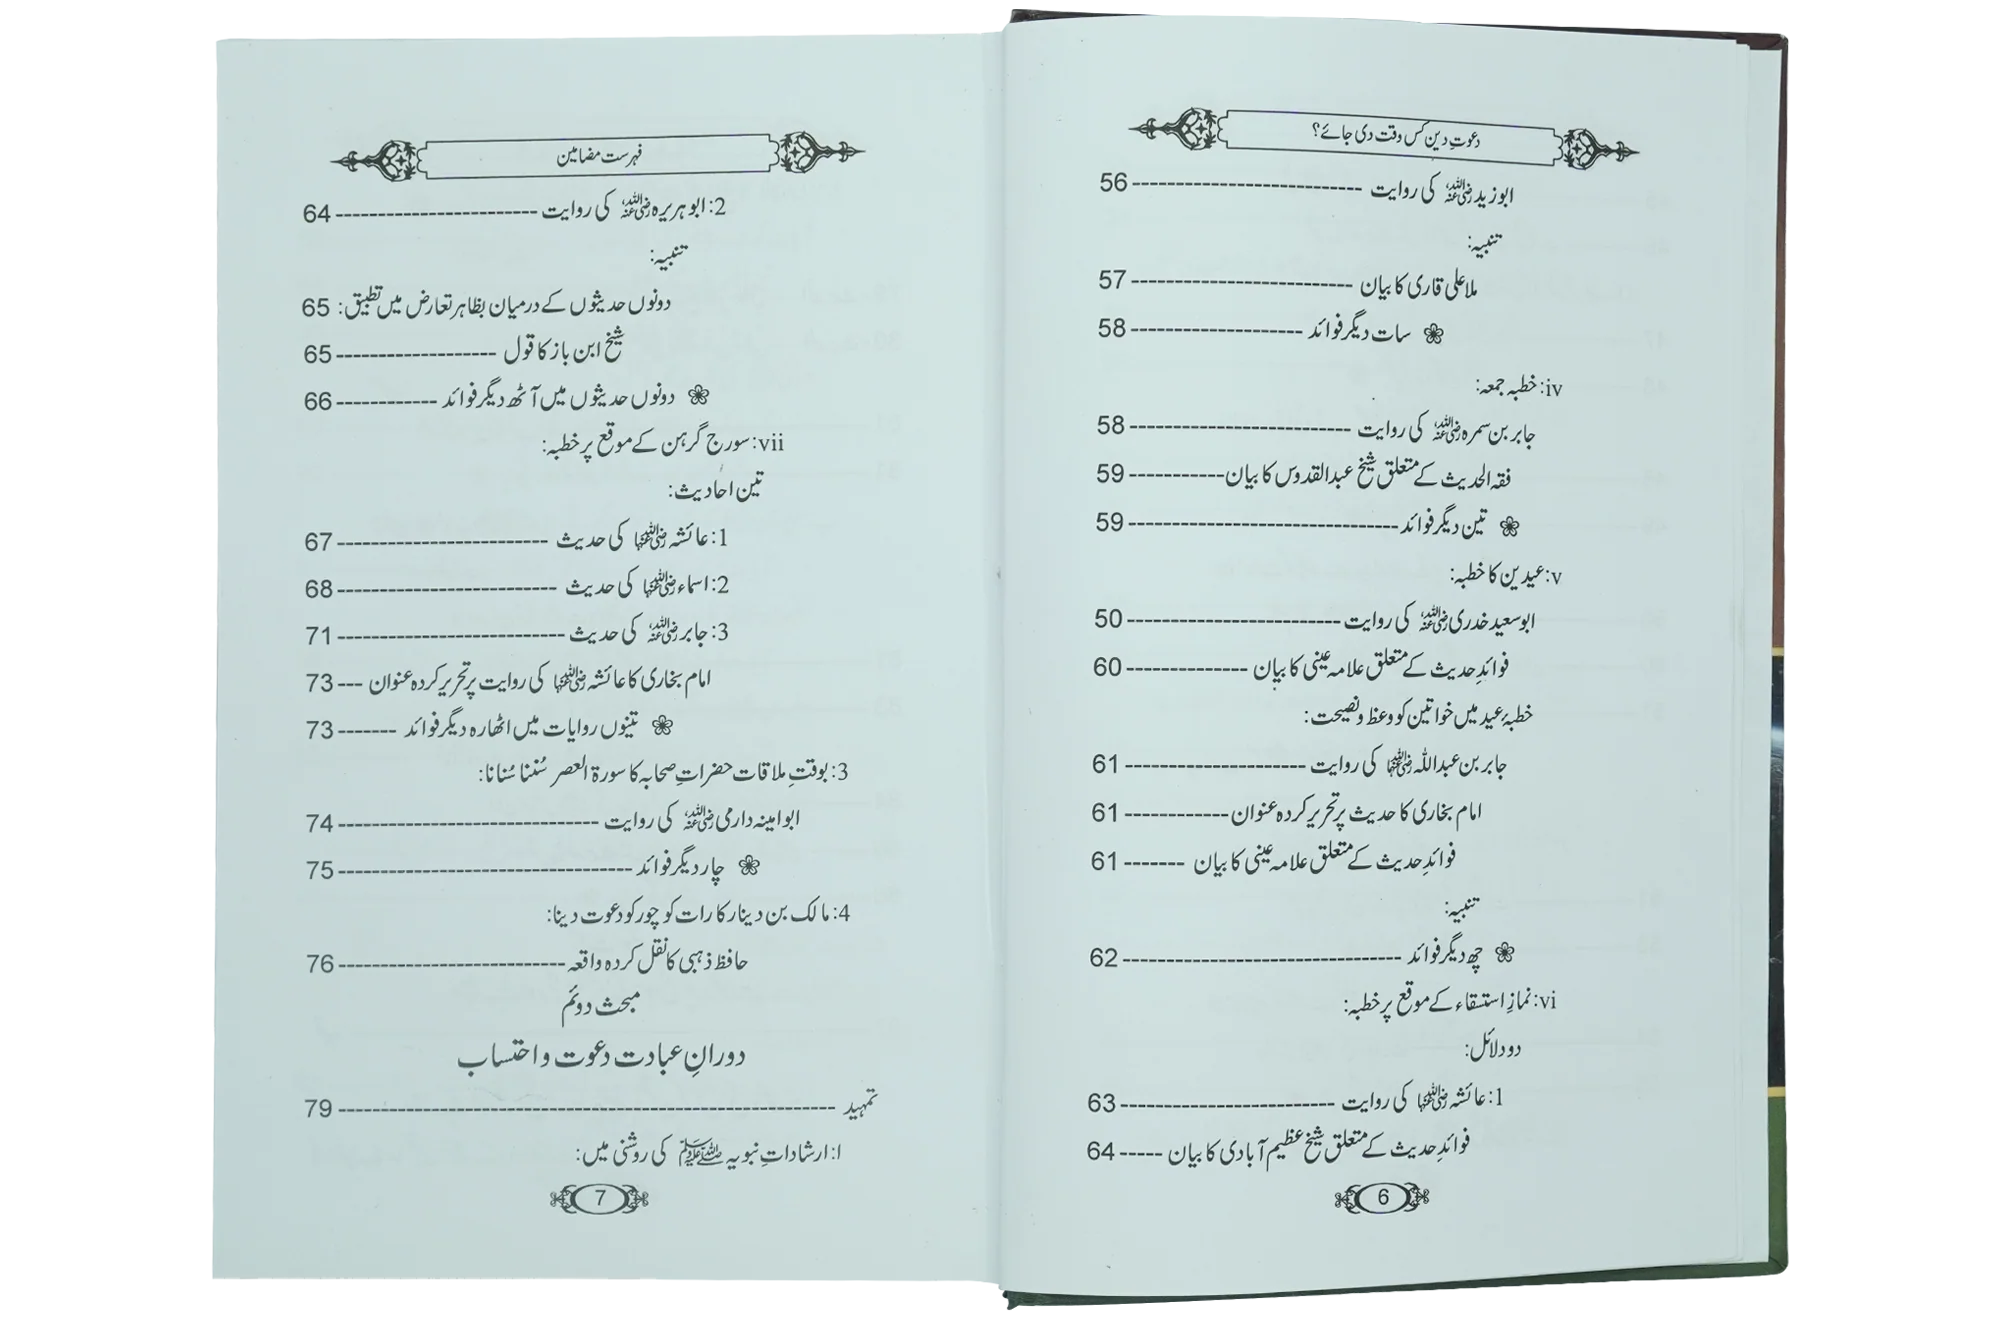 دعوتِ دین کس وقت دی جائے؟
ابوزید رضی اللہ عنہ کی روایت ---------------------------- 56
تنبیہ:
ملا علی قاری کا بیان --------------------------- 57
❀ سات دیگر فوائد --------------------- 58
iv: خطبہ جمعہ:
جابر بن سمرہ رضی اللہ عنہ کی روایت --------------------------- 58
فقہ الحدیث کے متعلق شیخ عبدالقدوس کا بیان ------------ 59
❀ تین دیگر فوائد --------------------------------- 59
v: عیدین کا خطبہ:
ابوسعید خدری رضی اللہ عنہ کی روایت -------------------------- 50
فوائدِ حدیث کے متعلق علامہ عینی کا بیان --------------- 60
خطبۂ عید میں خواتین کو وعظ و نصیحت:
جابر بن عبداللہ رضی اللہ عنہما کی روایت ---------------------- 61
امام بخاری کا حدیث پر تحریر کردہ عنوان ------------- 61
فوائدِ حدیث کے متعلق علامہ عینی کا بیان ------- 61
تنبیہ:
❀ چھ دیگر فوائد ---------------------------------- 62
vi: نمازِ استسقاء کے موقع پر خطبہ:
دو دلائل:
1: عائشہ رضی اللہ عنہا کی روایت -------------------------- 63
فوائدِ حدیث کے متعلق شیخ عظیم آبادی کا بیان ----- 64
6
فہرست مضامین
2: ابوہریرہ رضی اللہ عنہ کی روایت ------------------------ 64
تنبیہ:
دونوں حدیثوں کے درمیان بظاہر تعارض میں تطبیق: 65
شیخ ابن باز کا قول ------------------- 65
❀ دونوں حدیثوں میں آٹھ دیگر فوائد ------------ 66
vii: سورج گرہن کے موقع پر خطبہ:
تین احادیث:
1: عائشہ رضی اللہ عنہا کی حدیث ------------------------- 67
2: اسماء رضی اللہ عنہا کی حدیث -------------------------- 68
3: جابر رضی اللہ عنہ کی حدیث --------------------------- 71
امام بخاری کا عائشہ رضی اللہ عنہا کی روایت پر تحریر کردہ عنوان --- 73
❀ تینوں روایات میں اٹھارہ دیگر فوائد ------- 73
3: بوقتِ ملاقات حضراتِ صحابہ کا سورۃ العصر سُننا سُنانا:
ابو امینہ دارمی رضی اللہ عنہ کی روایت ------------------------------- 74
❀ چار دیگر فوائد ----------------------------------- 75
4: مالک بن دینار کا رات کو چور کو دعوت دینا:
حافظ ذہبی کا نقل کردہ واقعہ --------------------------- 76
مبحث دوئم
دورانِ عبادت دعوت و احتساب
تمہید ----------------------------------------------------------- 79
ا: ارشاداتِ نبویہ ﷺ کی روشنی میں:
7